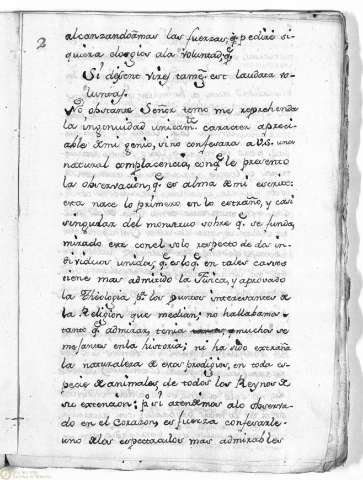 2
alcanzando a mas las fuerzas, q. pedirè si-
quiera elogios à la voluntad, q.
Si desint vires tamen est laudata vo-
luntas.
No obstante Señor temo me reprehenda
la ingenuidad unicam.te caracter apreci-
able de mi genio, si no confesara à V.S. una
natural complacencia, con q. le presento
la observacion, q. es alma de mi escrito:
esta nace lo primero en lo extraño, y casi
singular del monstruo sobre q. se funda,
mirado este con el solo respecto de dos in-
dividuos unidos, q. es lo q. en tales casos
tiene mas admitido la Fisica, y aprovado
la Theologia p.a los puntos interesantes de
la Religion que median; no hallabamos
tanto q. admirar, tenia muchos se-
mejantes en la historia; ni ha sido extraña
la naturaleza de estos prodigios, en toda es-
pecie de animales, de todos los Reynos de
su extencion; p.o si atendemos à lo observa-
do en el Corazon, es fuerza confesarle
uno de los espectaculos mas admirables